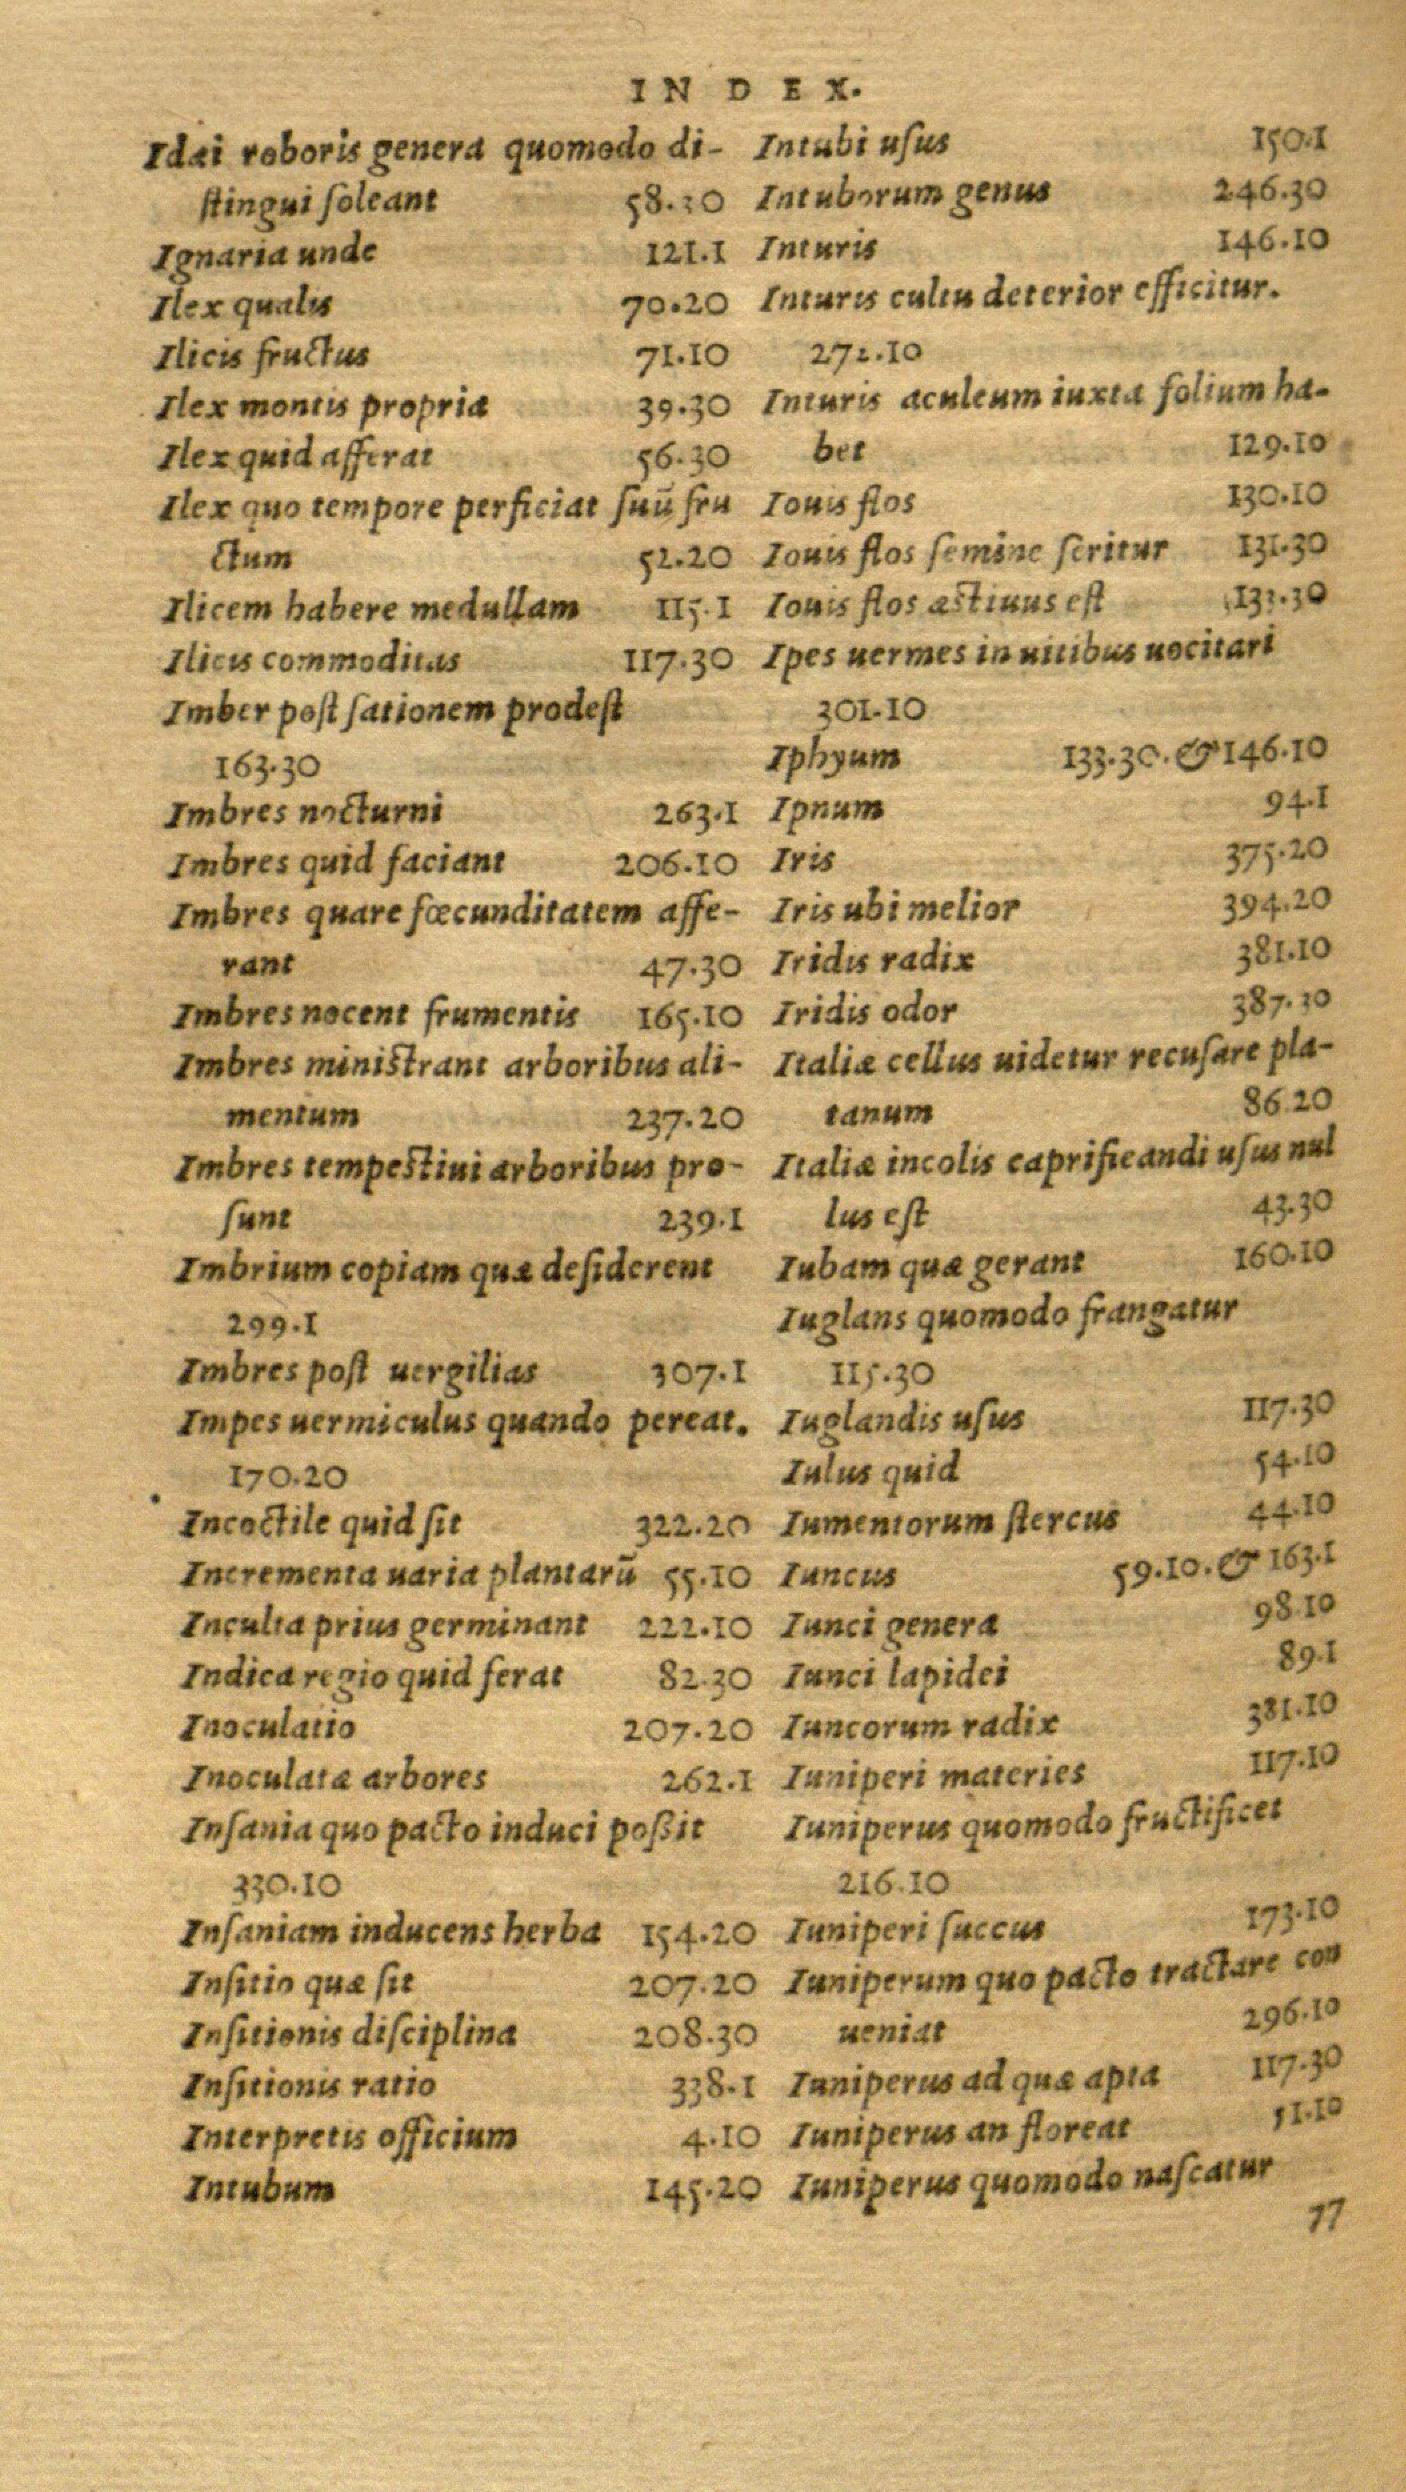 INDEX.
Idæi roboris genera quomodo di-
stingui soleant 58.30
Ignaria unde 121.1
Ilex qualis 70.20
Ilicis fructus 71.10
Ilex montis propria 39.30
Ilex quid afferat 56.30
Ilex quo tempore perficiat suū fru
ctum 52.20
Ilicem habere medullam 115.1
Ilicis commoditas 117.30
Imber post sationem prodest
163.30
Imbres nocturni 263.1
Imbres quid faciant 206.10
Imbres quare fœcunditatem affe-
rant 47.30
Imbres nocent frumentis 165.10
Imbres ministrant arboribus ali-
mentum 237.20
Imbres tempestiui arboribus pro-
sunt 239.1
Imbrium copiam quæ desiderent
299.1
Imbres post uergilias 307.1
Impes uermiculus quando pereat.
170.20
Incoctile quid sit 322.20
Incrementa uaria plantarū 55.10
Inculta prius germinant 222.10
Indica regio quid ferat 82.30
Inoculatio 207.20
Inoculatæ arbores 262.1
Insania quo pacto induci poßit
330.10
Insaniam inducens herba 154.20
Insitio quæ sit 207.20
Insitionis disciplina 208.30
Insitionis ratio 338.1
Interpretis officium 4.10
Intubum 145.20
Intubi usus 150.1
Intuborum genus 246.30
Inturis 146.10
Inturis cultu deterior efficitur.
272.10
Inturis aculeum iuxta folium ha-
bet 129.10
Iouis flos 130.10
Iouis flos semine seritur 131.30
Iouis flos æstiuus est 133.30
Ipes uermes in uitibus uocitari
301.10
Iphyum 133.30. & 146.10
Ipnum 94.1
Iris 375.20
Iris ubi melior 394.20
Iridis radix 381.10
Iridis odor 387.30
Italiæ cellus uidetur recusare pla-
tanum 86 20
Italiæ incolis caprificandi usus nul
lus est 43.30
Iubam quæ gerant 160.10
Iuglans quomodo frangatur
115.30
Iuglandis usus 117.30
Iulus quid 54.10
Iumentorum stercus 44.10
Iuncus 59.10. & 163.1
Iunci genera 98 10
Iunci lapidei 89.1
Iuncorum radix 381.10
Iuniperi materies 117.10
Iuniperus quomodo fructificet
216.10
Iuniperi succus 173.10
Iuniperum quo pacto tractare con
ueniat 296.10
Iuniperus ad quæ apta 117.30
Iuniperus an floreat 51.10
Iuniperus quomodo nascatur
77